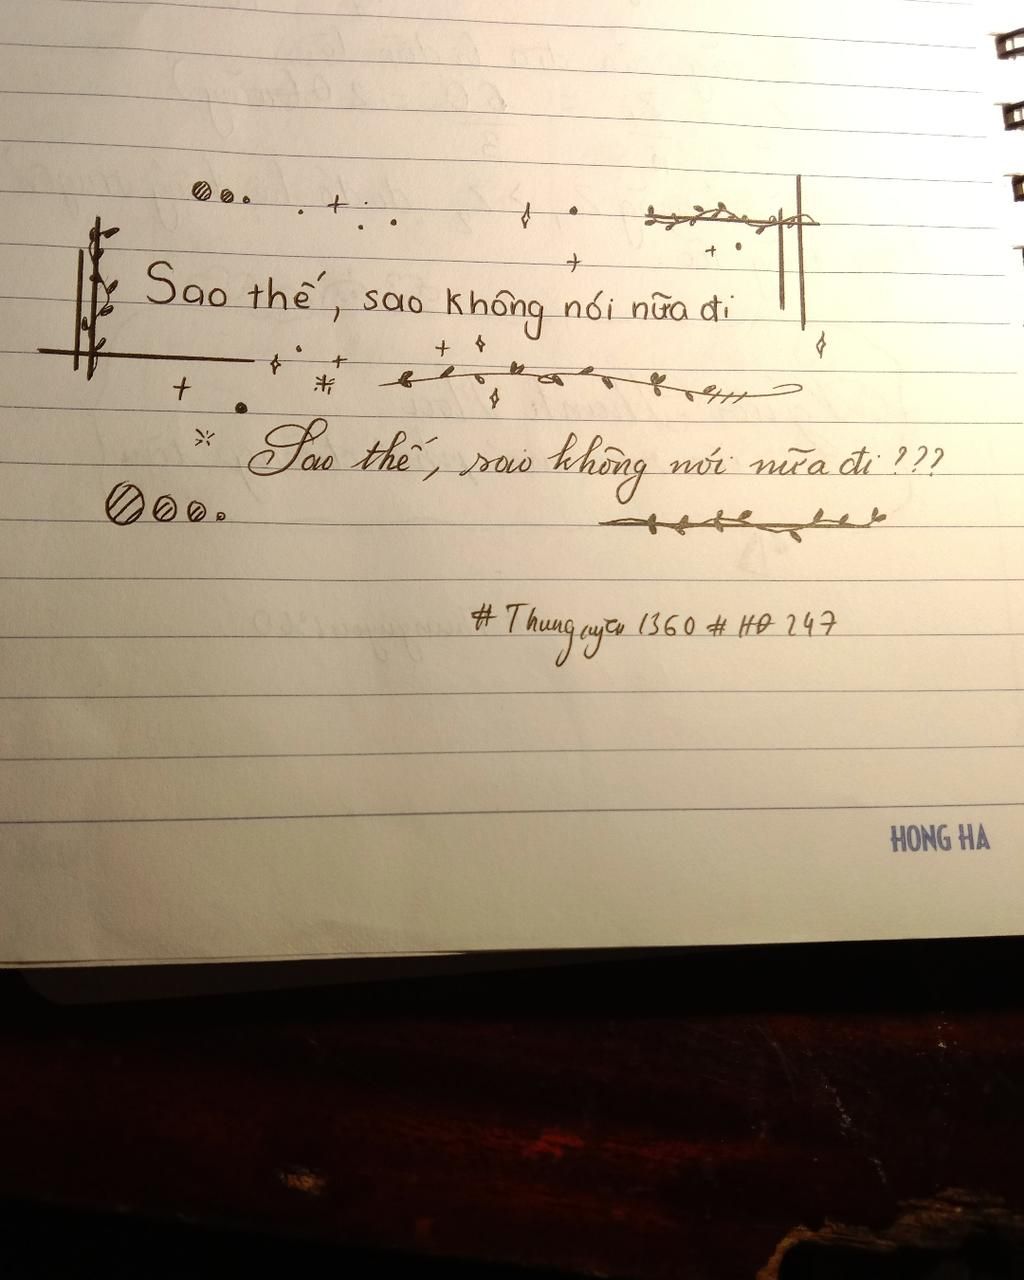 Sao thế, sao không nói nữa đi
Sao thế, sao không nói nữa đi ???
# Thunguyen 1360 # HĐ 247
HONG HA